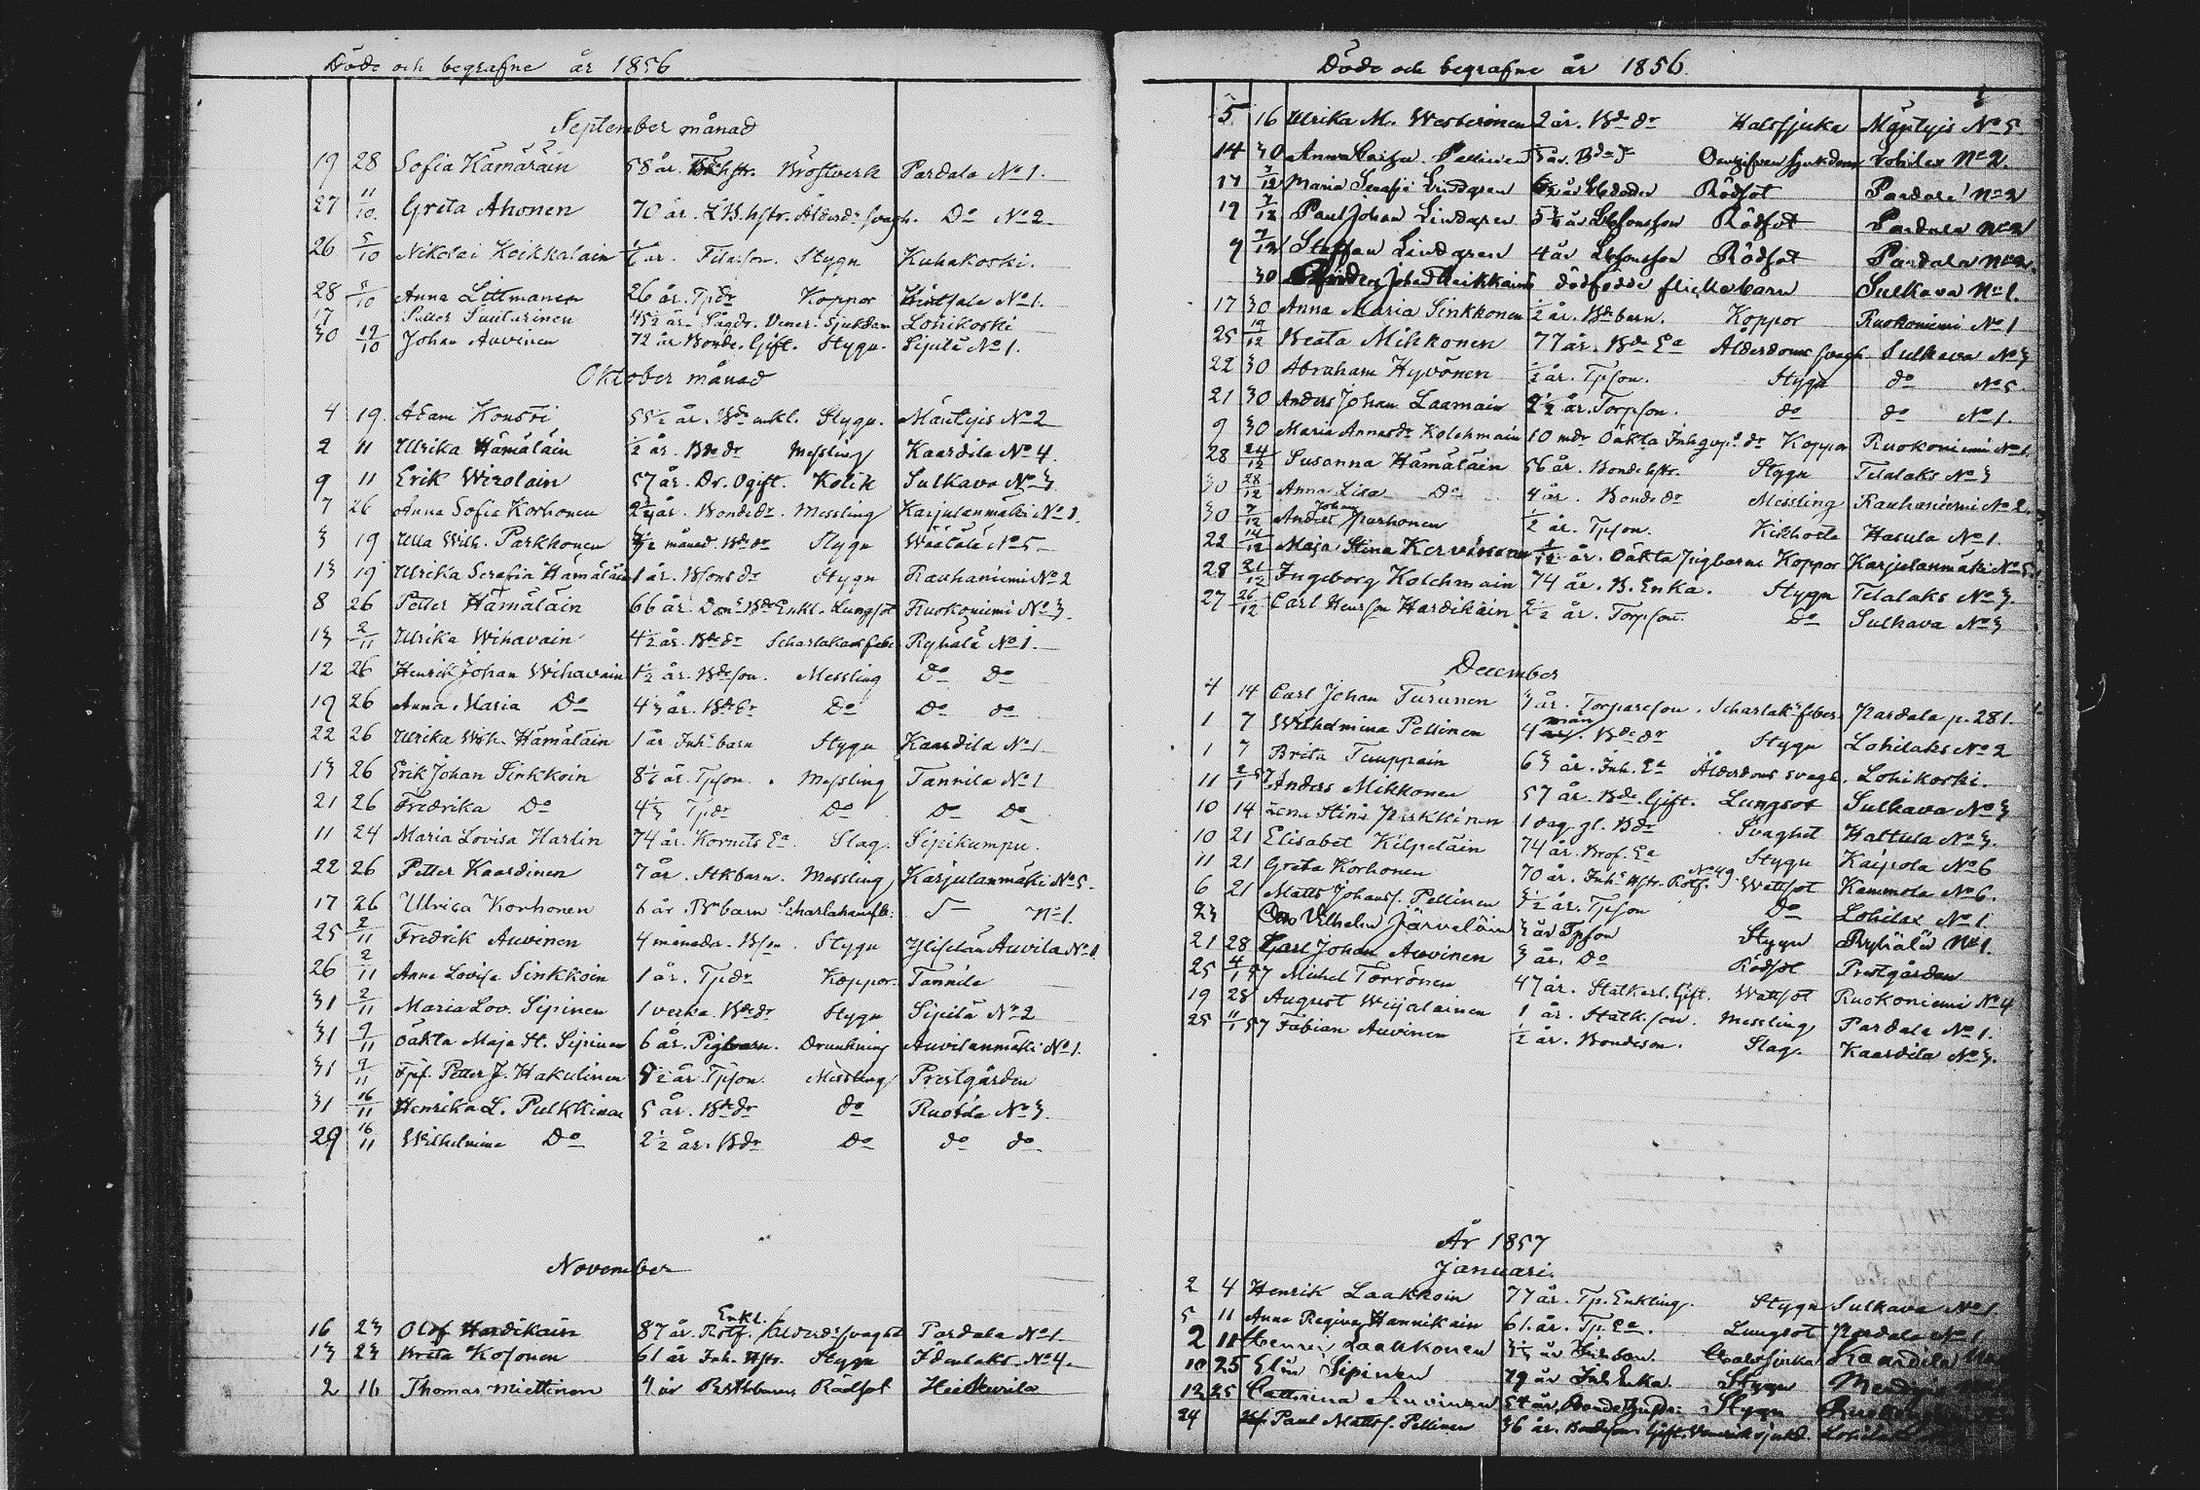 Döde och begrafne år 1856
September månad
19 28 Sofia Kämäräin 58 år. hstr. Bröstverk Pardala No 1.
27 11/10 Grita Ahonen 70 år. Ålderds svagh. Do No 2
26 5/10 Nikolai Heikkalain år. Stygn Kuhakoski.
28 5/10 Anna Littmanen 26 år. Tpdr Koppor No 1.
17 Petter Suutarinen 45 1/2 år. Vener. Sjukdom Lohikoski
30 12/10 Johan Auvinen 72 år Bonde. Gift. Stygn. Sipilä No 1.
Oktober månad
4 19 Adam Konsti 55 1/2 år. Bde enkl. Stygn. Mäntyis No 2
2 11 Ulrika Hämäläin 1/2 år. Bde dr Messling Kaardila No 4.
9 11 Erik Wirolain 57 år. Dr. Ogift. Kolik Sulkava No 3
7 26 Anna Sofia Korhonen 2 1/4 år. Bonde dr. Messling Karjulanmäki No 1.
3 19 Ulla Wilh. Parkkonen månad. Bde dr Stygn Wäätälä No 5
13 19 Ulrika Serafia Hämäläin 1 år. Bsons dr Stygn Rauhaniemi No 2
8 26 Petter Hämäläin 66 år. Bde Enkl. Lungsot Ruokoniemi No 3.
13 2/11 Ulrika Wihavain 4 1/2 år. Bde dr Scharlakansfeber Ryhälä No 1.
12 26 Henrik Johan Wihavain 1 1/2 år. Bdeson. Messling Do Do
19 26 Anna Maria Do 4 3 år. Bde dr Do Do do
22 26 Ulrika Wilh. Hämäläin 1 år Inhs barn Stygn Kaardila No 1
13 26 Erik Johan Sinkkoin 8 1/6 år. Tpson. Messling Tannila No 1
21 26 Fredrika Do 4 1/3 Tpdr Do Do Do
11 24 Maria Lovisa Harlin 74 år. Kornets Ea Slag. Sipikumpu.
22 26 Petter Kaardinen 7 år. Stkbarn. Messling Karjulanmäki No 5.
17 26 Ulrica Korhonen 6 år. Bs barn Scharlakansfb: No 1.
25 2/11 Fredrik Auvinen 4 månader. Bson. Stygn Auvila No 1
26 2/11 Anna Lovisa Sinkkoin 1 år. Tpdr Koppor. Tannila
31 2/11 Maria Lov. Sipinen 1 vecka. Bde dr Stygn Sipilä No 2
31 9/11 Oäkta Maja St. Sipinen 6 år. Pigbarn. Drunkning Auvilanmäki No 1.
31 9/11 Tpf. Petter J. Hakulinen 8 1/2 år. Tpson. Messling Prestgården
31 16/11 Henrika L. Pulkkinen 5 år. Bde dr do Ruotila No 3
29 16/11 Wilhelmina Do 2 1/2 år. Bdr Do do do
November
16 23 Olof Hardikain 87 år. Rotf. Enkl. Ålderds svaghet Pardala No 1
13 23 Brita Kosonen 61 år Inh. Hstr. Stygn Idenlaks No 4.
2 16 Thomas Miettinen 4 år Rödsot
Döde och begrafne år 1856.
5 16 Ulrika M. Westerinen 2 år. Bde dr Halssjuka Mäntyis No 5
14 30 Anna Pellinen år. Bde dr Lohilax No 2.
17 7/12 Maria Serafi Lindgren Rödsot Pardala No 2
19 7/12 Paul Johan Lindgren 5 1/2 år Rödsot Pardala No 2
9 7/12 Staffan Lindgren 4 år Rödsot Pardala No 2.
30 Johan Heikkain dödfödde flickobarn Sulkava No 1.
17 30 Anna Maria Sinkkonen 1/2 år. Bdebarn. Koppor Ruokoniemi No 1
25 19/12 Beata Mikkonen 77 år. Bde Ea Ålderdoms svagh Sulkava No 3
22 30 Abraham Hyvönen 1/2 år. Tpson. Stygn do No 5
21 30 Anders Johan Laamain 2 1/2 år. Torpson. do do No 1.
9 30 Maria Annasdr Kolehmain 10 mdr Oäkta Inhs dr Koppor Ruokoniemi No 1.
28 24/12 Susanna Hämäläin 56 år. Bonde hstr. Stygn Telalaks No 3
30 28/12 Anna Lisa Do 4 år. Bonde dr Messling Rauhaniemi No 2.
30 7/12 Anders Johan Parhonen 1/2 år. Tpson. Kikhosta Hasula No 1.
22 14/12 Maja Stina Kervinen år. Oäkta Pigbarn Koppor Karjulanmäki No 5.
28 21/12 Ingeborg Kolehmain 74 år. B. Enka. Stygn Telalaks No 3.
27 26/12 Carl Henrson Hardikain 2 1/2 år. Torpson. Do Sulkava No 3
December
4 14 Carl Johan Turunen 3 år. Torpareson. Scharlaks feber Pardala p. 281.
1 7 Wilhelmina Pellinen 4 mån. Bde dr Stygn Lohilaks No 2
1 7 Brita Tuuppain 63 år. Inh. Ea Ålderdoms svagh. Lohikoski.
11 2/1 57 Anders Mikkonen 57 år. Bde. Gift. Lungsot Sulkava No 3
10 14 Lena Stina Pirkkinen 1 dag gl. Bdr Svaghet Hattula No 3.
10 21 Elisabet Kilpeläin 74 år. Brof. Ea Stygn Kaipola No 6
11 21 Greta Korhonen 70 år. Inhs Hstr. Rotf. No 49. Wattsot Kammola No 6.
6 21 Matts Johans. Pellinen 3 1/2 år. Tpson Do Lohilax No 1.
23 Otto Vilhelm Järveläin 3 år Tpson Stygn Ryhälä No 1.
21 28 Carl Johan Auvinen 3 år. Do Rödsot Prestgården
25 4/1 57 Mickel Torrönen 47 år. Statkarl. Gift. Wattsot Ruokoniemi No 4
19 28 August Wiijalainen 1 år. Statk. son. Messling Pardala No 1.
25 11/1 57 Fabian Auvinen 1/2 år. Bondeson. Slag. Kaardila No 3.
År 1857
Januari.
2 4 Henrik Laakkoin 77 år. Tp. Enkling. Stygn Sulkava No 1
5 11 Anna Regina Hannikain 61 år. Tp. Ea. Lungsot Pardala No 1
2 11 Laakkonen år Halssjuka Kaardila
10 25 Elin Sipinen 79 år Inh Enka. Stygn
12 25 Cathrina Auvinen år, Bonde Stygn
24 Paul Matts. Pellinen 36 år. Gift. Venerisk sjukd.